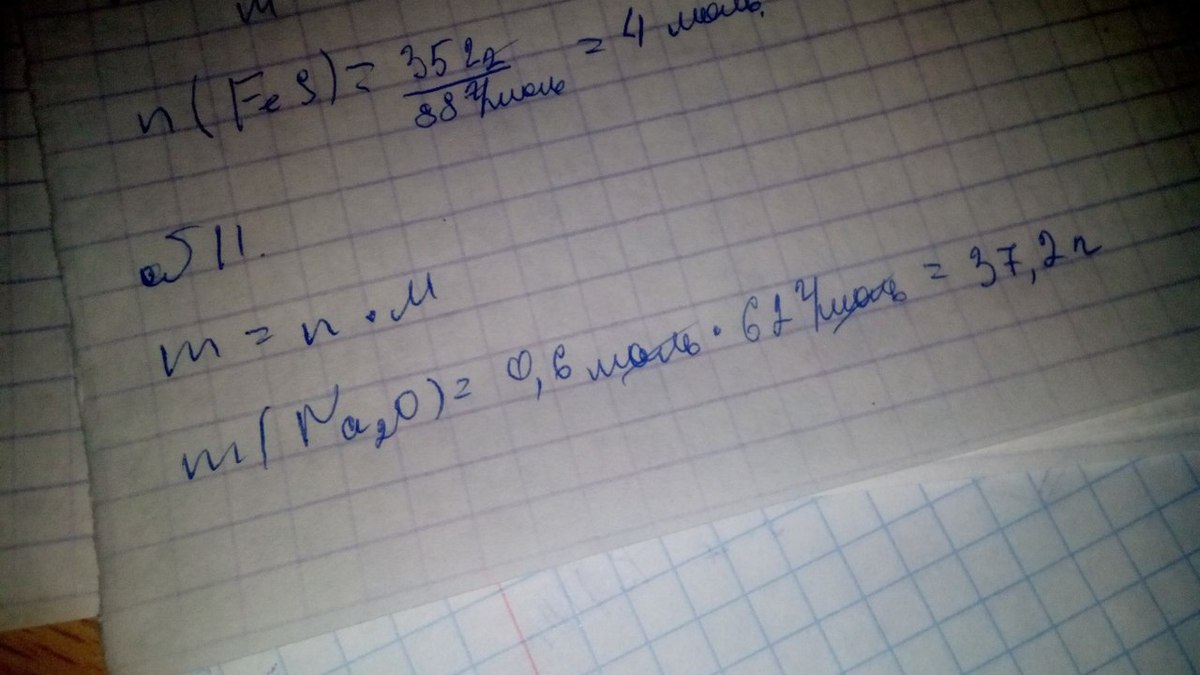 n(FeS) = 352г / 88 г/моль = 4 моль.
№11.
m = n · M
m(Na₂O) = 0,6 моль · 62 г/моль = 37,2 г